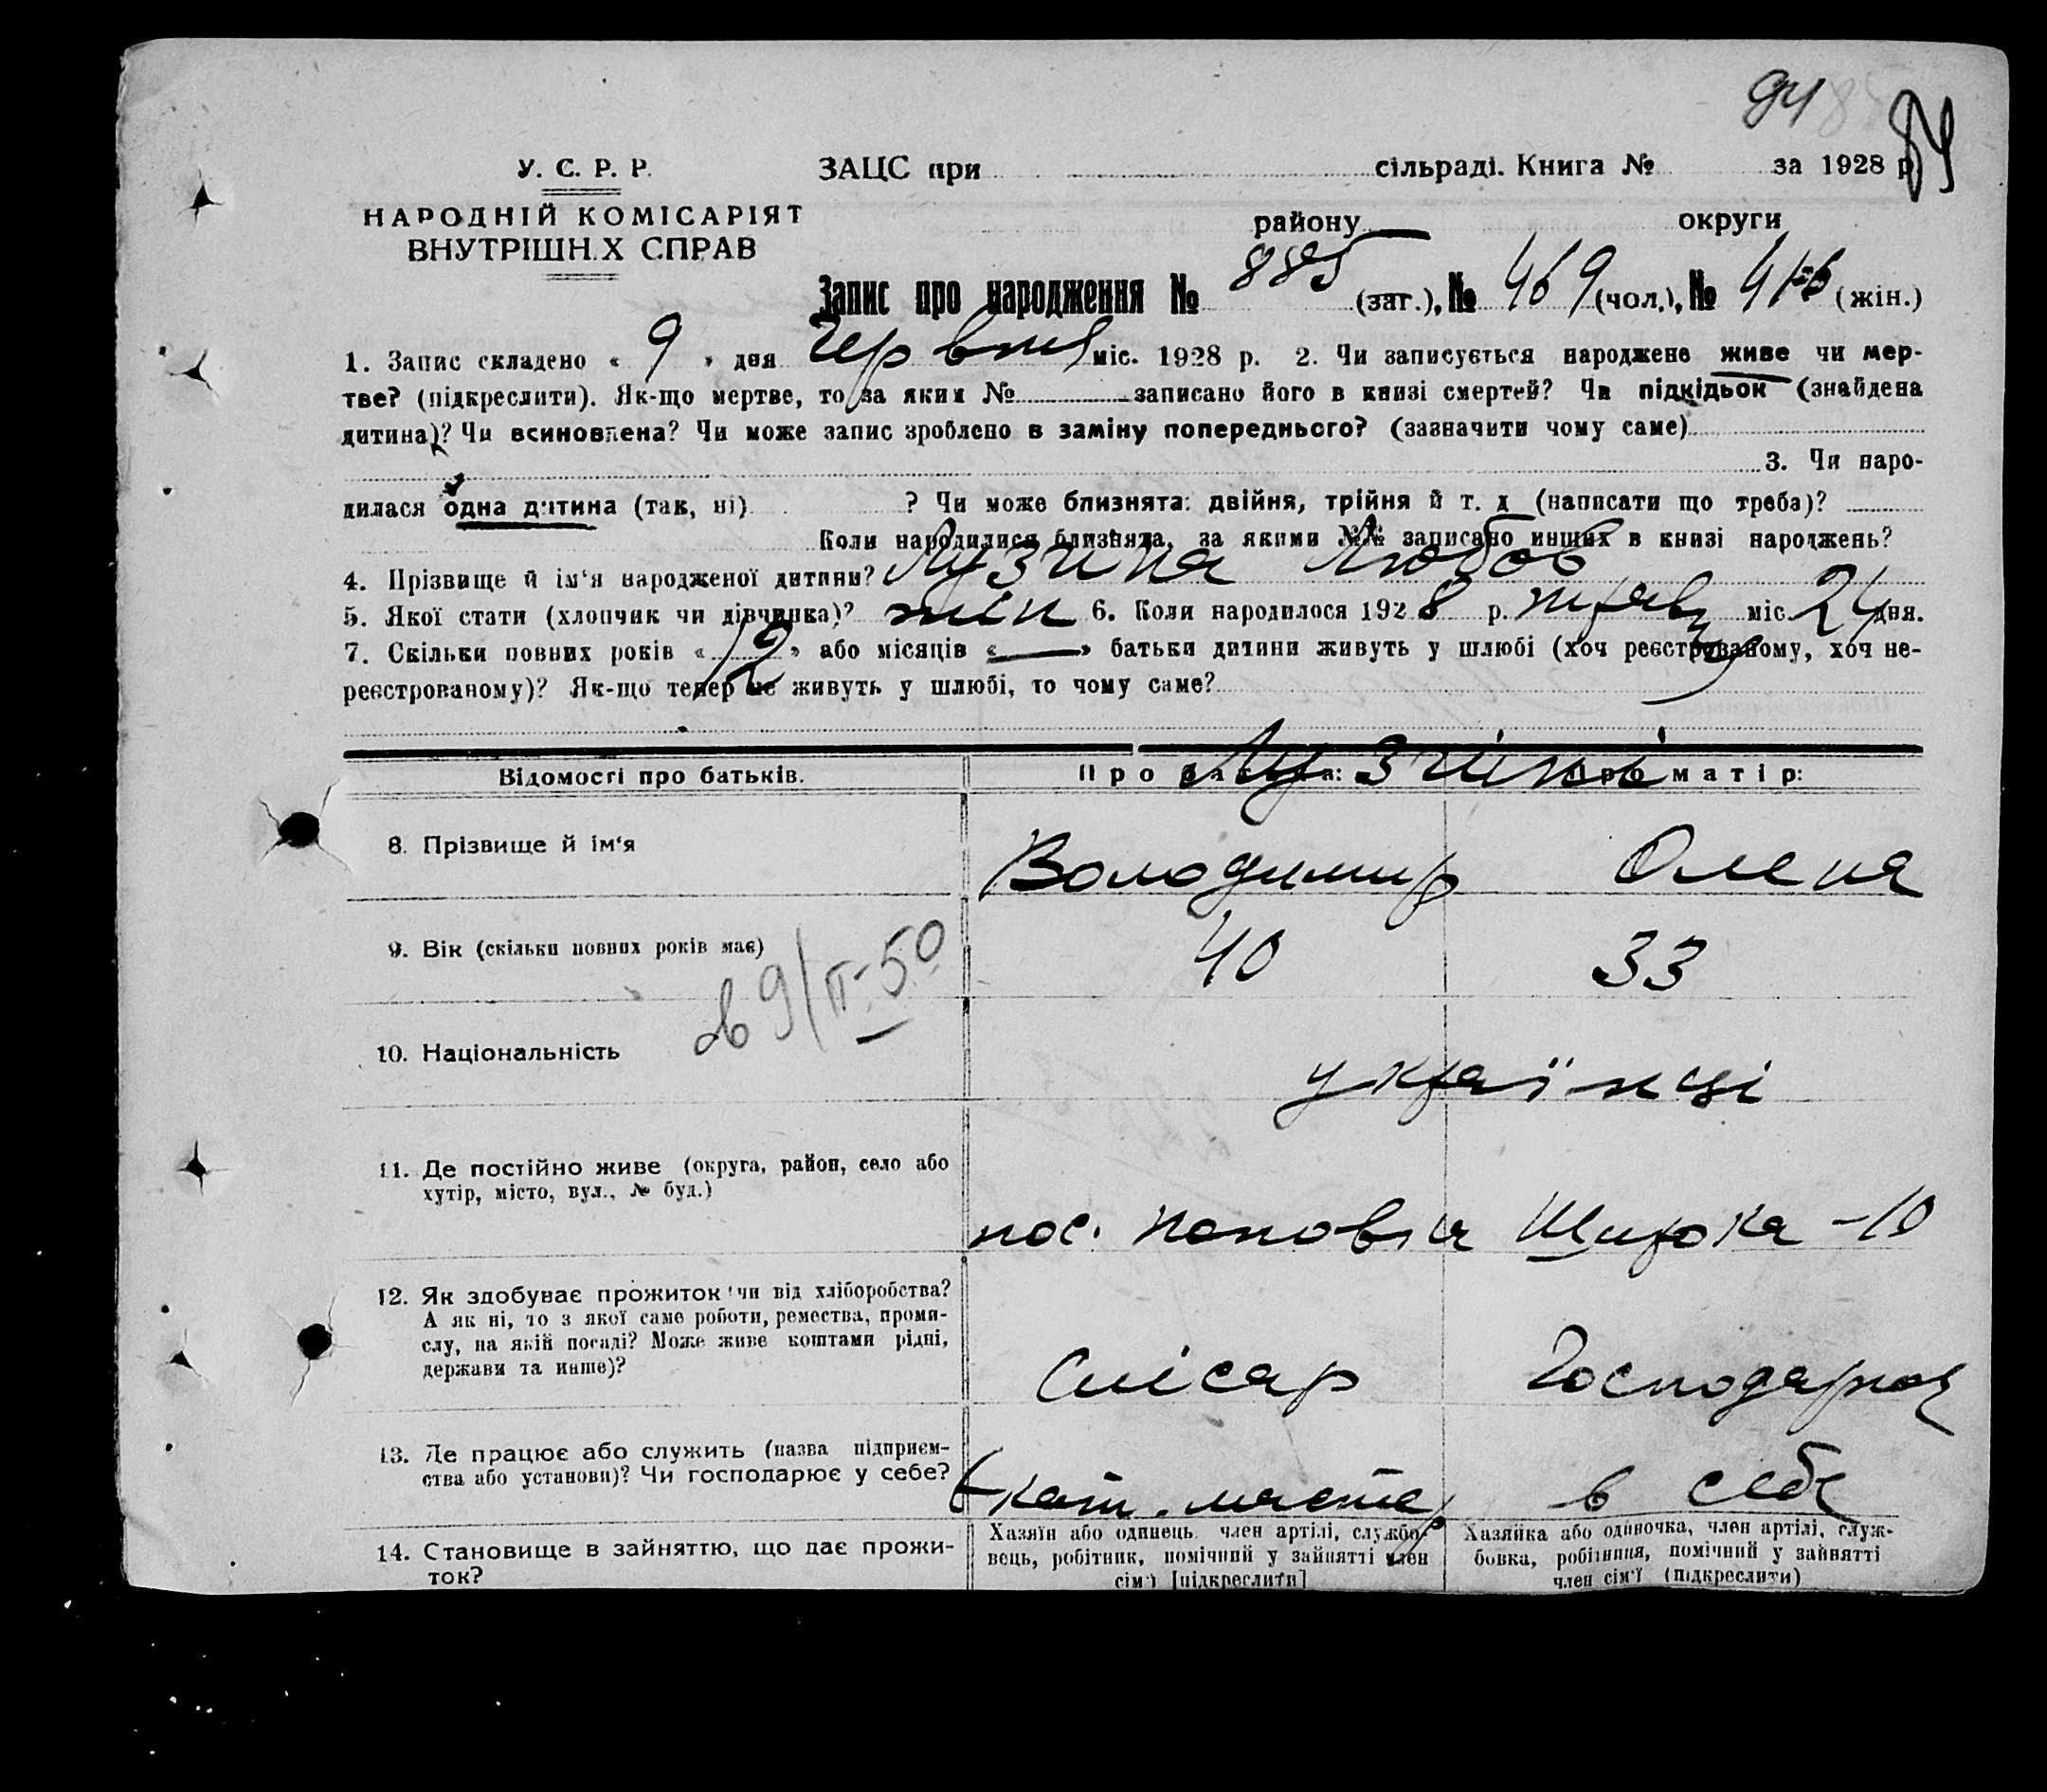 94
84
У. С. Р. Р.
НАРОДНІЙ КОМІСАРІЯТ
ВНУТРІШН.Х СПРАВ
ЗАЦС при сільраді. Книга № за 1928 р.
району округи
Запис про народження № 885 (заг.), № 469 (чол.), № 416 (жін.)
1. Запис складено « 9 » дня Червня міс. 1928 р. 2. Чи записується народжене живе чи мер-
тве? (підкреслити). Як-що мертве, то за яким № записано його в книзі смертей? Чи підкідьок (знайдена
дитина)? Чи всиновлена? Чи може запис зроблено в заміну попереднього? (зазначити чому саме)
3. Чи наро-
дилася одна дитина (так, ні) ? Чи може близнята: двійня, трійня й т. д (написати що треба)?
Коли народилися близнята, за якими №№ записано инших в книзі народжень?
4. Прізвище й ім'я народженої дитини? Лузина Любов
5. Якої стати (хлопчик чи дівчинка)? жін 6. Коли народилося 1928 р. травня міс. 24 дня.
7. Скільки повних років « 12 » або місяців « — » батьки дитини живуть у шлюбі (хоч реєстрованому, хоч не-
реєстрованому)? Як-що тепер не живуть у шлюбі, то чому саме?
Відомості про батьків. Про батька: Про матір:
8. Прізвище й ім'я Володимир Олена
9. Вік (скільки повних років має) 40 33
9/II-50
10. Національність українці
11. Де постійно живе (округа, район, село або
хутір, місто, вул., № буд.)
пос. Поповка Широка - 10
12. Як здобуває прожиток чи від хліборобства?
А як ні, то з якої саме роботи, ремества, проми-
слу, на якій посаді? Може живе коштами рідні,
держави та инше)?
Слісар Господарює
13. Де працює або служить (назва підприєм-
ства або установи)? Чи господарює у себе?
майстер в себе
14. Становище в зайняттю, що дає прожи-
ток?
Хазяїн або одинець член артілі, службо-
вець, робітник, помічний у зайнятті член
сім'ї [підкреслити]
Хазяйка або одиночка, член артілі, служ-
бовка, робітниця, помічний у зайнятті
член сім'ї (підкреслити)